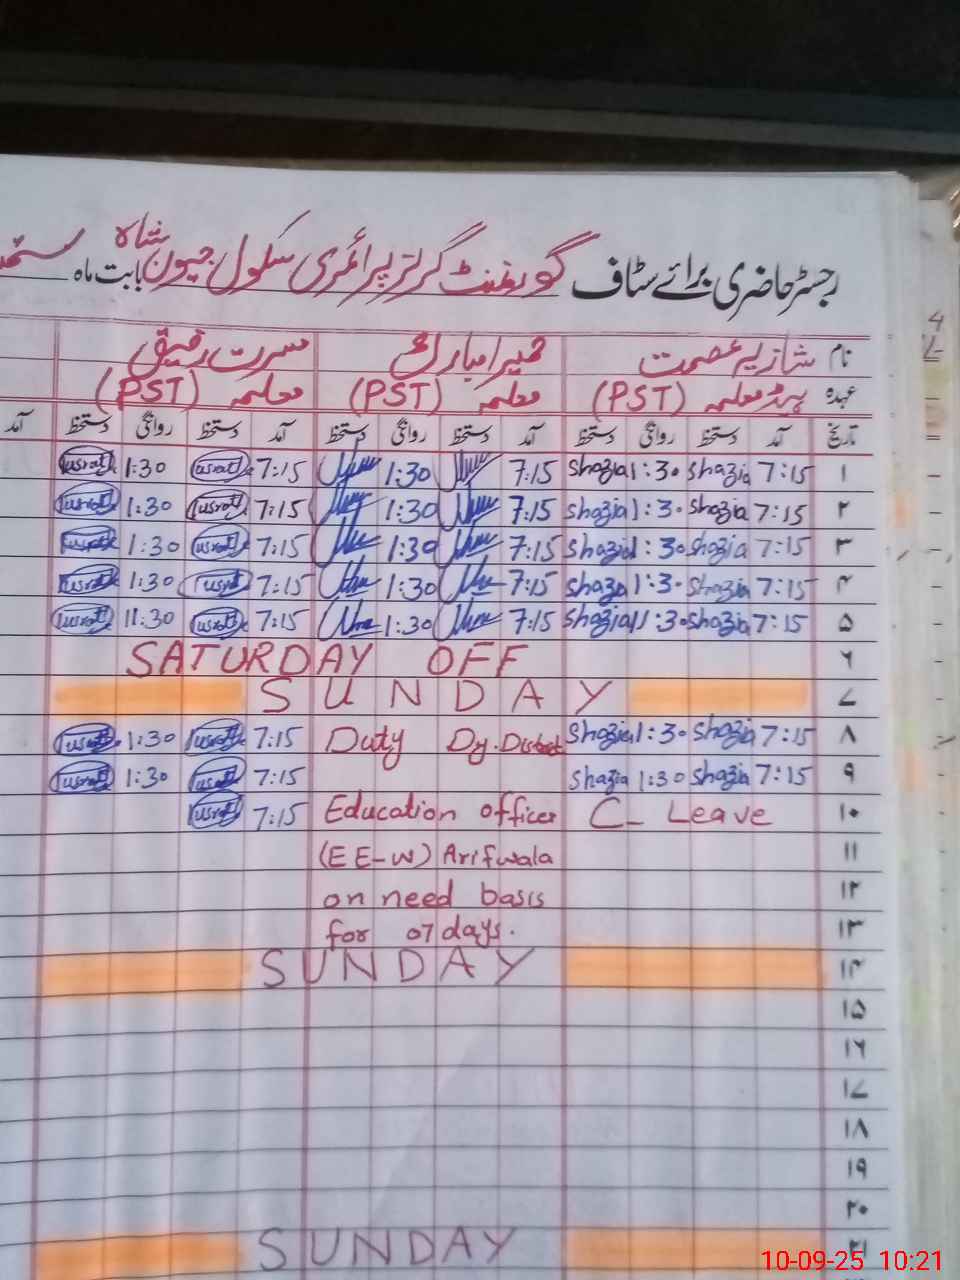 رجسٹر حاضری برائے سٹاف گورنمنٹ گرلز پرائمری سکول جیون شاہ بابت ماہ
نام شازیہ عصمت حمیرا مبارک مسرت رفیق
عہدہ ہیڈ معلمہ (PST) معلمہ (PST) معلمہ (PST)
تاریخ آمد دستخط روانگی دستخط آمد دستخط روانگی دستخط آمد دستخط روانگی دستخط آمد
۱ 7:15 shazia 1:30 shazia 7:15 1:30 7:15 usrat 1:30 usrat
۲ 7:15 shazia 1:30 shazia 7:15 1:30 7:15 usrat 1:30 usrat
۳ 7:15 shazia 1:30 shazia 7:15 1:30 7:15 usrat 1:30 usrat
۴ 7:15 shazia 1:30 shazia 7:15 1:30 7:15 usrat 1:30 usrat
۵ 7:15 shazia 1:30 shazia 7:15 1:30 7:15 usrat 11:30 usrat
۶ SATURDAY OFF
۷ SUNDAY
۸ 7:15 shazia 1:30 shazia Duty Dy. District 7:15 usrat 1:30 usrat
۹ 7:15 shazia 1:30 shazia 7:15 usrat 1:30 usrat
۱۰ C_ Leave Education officer 7:15 usrat
۱۱ (EE-W) Arifwala
۱۲ on need basis
۱۳ for 07 days.
۱۴ SUNDAY
۱۵
۱۶
۱۷
۱۸
۱۹
۲۰
۲۱ SUNDAY
10-09-25 10:21